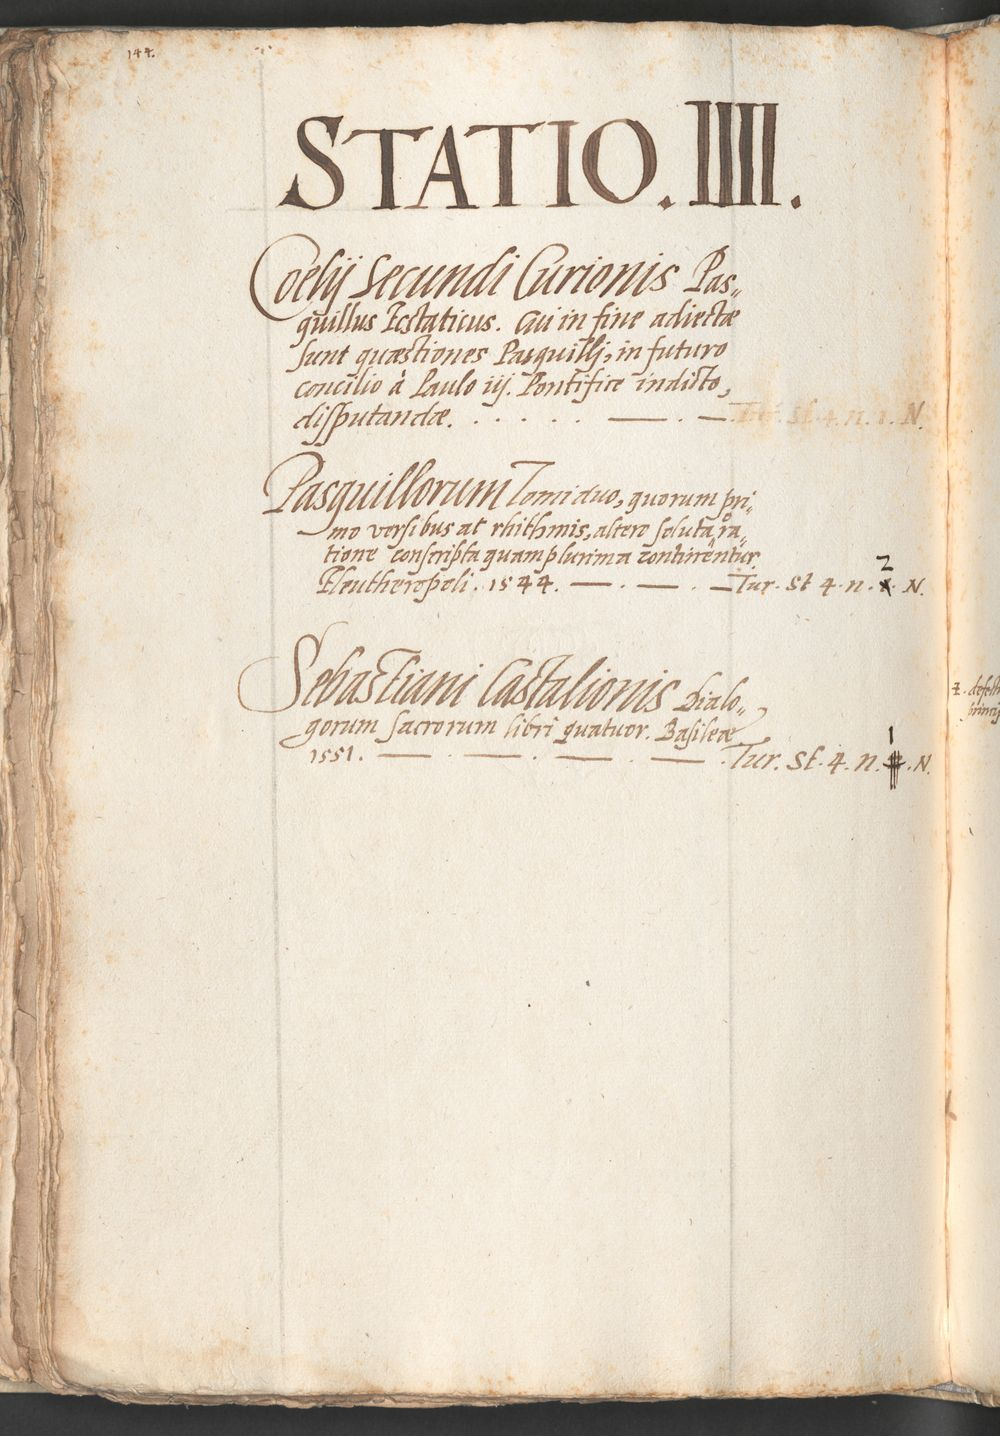 144.
STATIO. IIII.
Coelij Secundi Curionis Pas„
quillus Ecstaticus. Cui in fine adiectæ
sunt quæstiones Pasquilli, in futuro
concilio à Paulo iij. Pontifice indicto,
disputandæ. . . . . . — . — . Tur. St. 4. n. 1. N.
Pasquillorum Tomi duo, quorum pri„
mo versibus ac rhithmis, altero soluta ra„
tione conscripta quamplurima continentur
Eleutheropoli. 1544. — . — . — Tur. St 4. n. 2 N.
Sebastiani Castalionis Dialo„
gorum sacrorum libri quatuor. Basileæ
1551. — . — . — . — . Tur. St. 4. n. 1 . N.